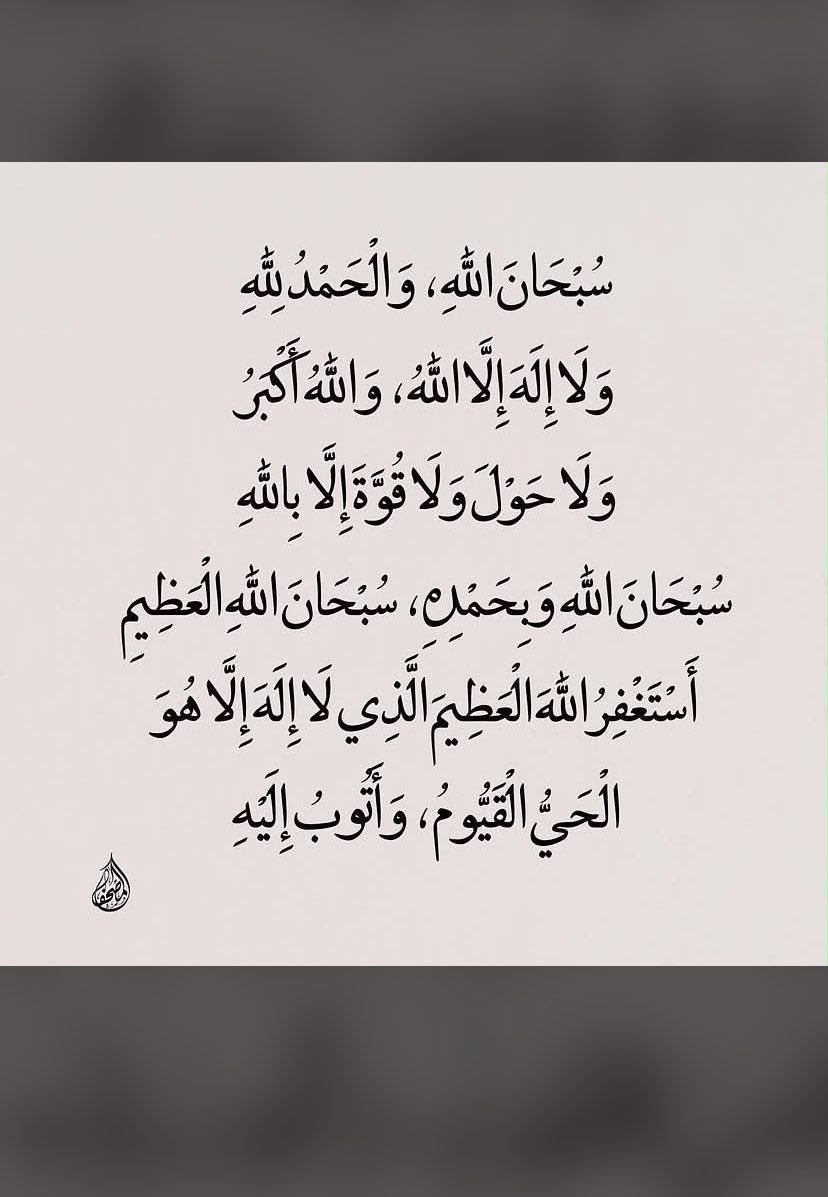 سُبْحَانَ اللّٰهِ، وَالْحَمْدُ لِلّٰهِ
وَلَا إِلَهَ إِلَّا اللّٰهُ، وَاللّٰهُ أَكْبَرُ
وَلَا حَوْلَ وَلَا قُوَّةَ إِلَّا بِاللّٰهِ
سُبْحَانَ اللّٰهِ وَبِحَمْدِهِ، سُبْحَانَ اللّٰهِ الْعَظِيمِ
أَسْتَغْفِرُ اللّٰهَ الْعَظِيمَ الَّذِي لَا إِلَهَ إِلَّا هُوَ
الْحَيُّ الْقَيُّومُ، وَأَتُوبُ إِلَيْهِ